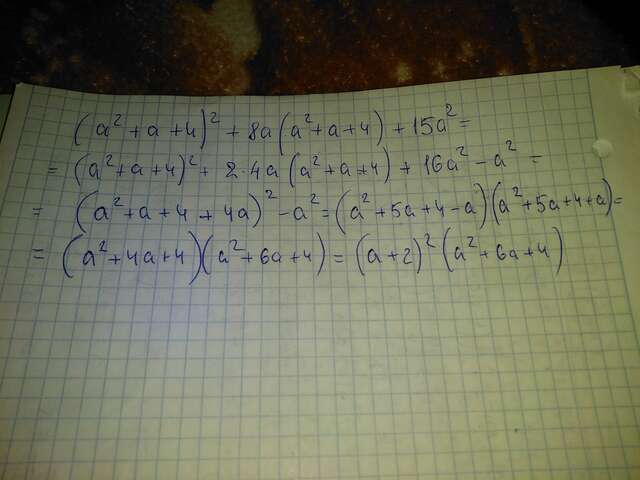 (a² + a + 4)² + 8a (a² + a + 4) + 15a² =
= (a² + a + 4)² + 2·4a (a² + a + 4) + 16a² - a² =
= (a² + a + 4 + 4a)² - a² = (a² + 5a + 4 - a)(a² + 5a + 4 + a) =
= (a² + 4a + 4)(a² + 6a + 4) = (a + 2)² (a² + 6a + 4)